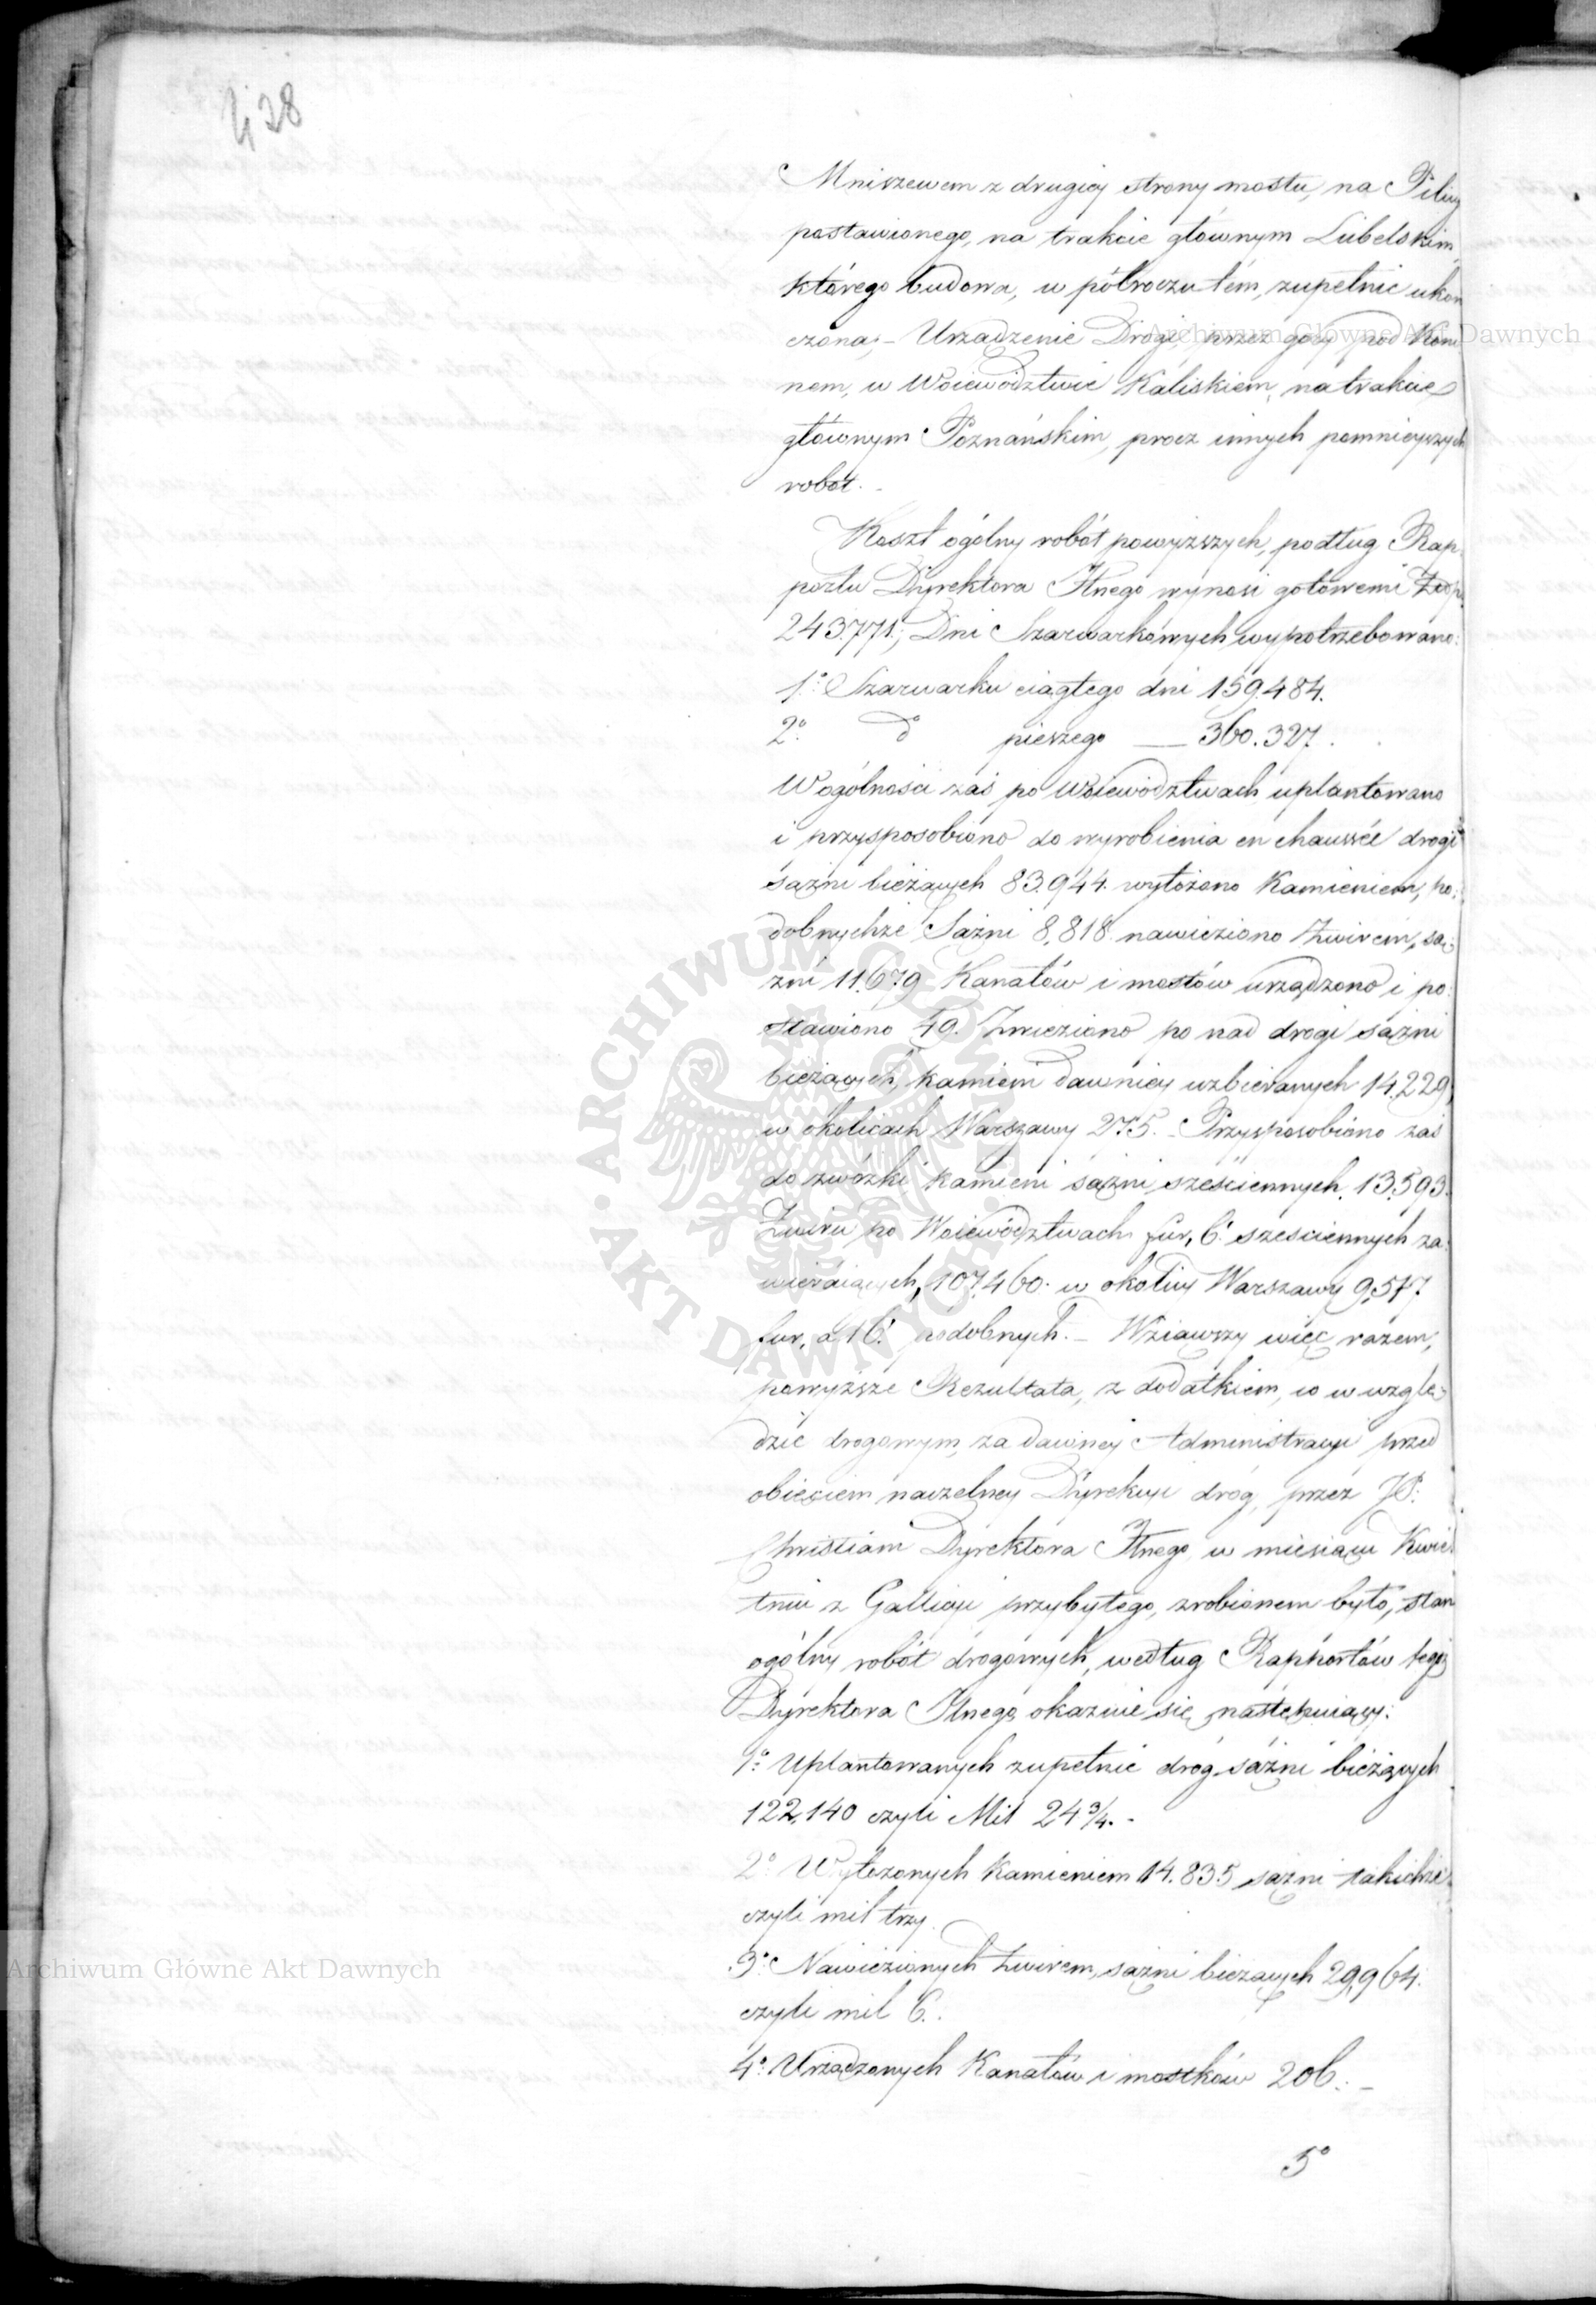 428
Mniszewem z drugiey strony mostu, na Pilicy
postawionego, na trakcie głównym Lubelskim
którego budowa, w półroczu tém, zupełnie ukoń
czona; – Urządzenie Drogi, przez góry pod Koni
nem, w Woiewództwie Kaliskiem, na trakcie
głównym Poznańskim, procz innych pomnieyszych
robot. –
Koszt ogólny robót powyższych, podług Rap
portu Dyrektora Jlnego wynosi gotowemi Złp.
243.771.; Dni Szarwarkówych wypotrzebowano:
1.° Szarwarku ciągłego dni 159.484.
2.° d° pieszego — 360.327.
W ogólności zaś po Woiewództwach uplantowano
i przysposobiono do wyrobienia en chaussée drogi
sążni bieżących 83.944. wyłożono Kamieniem, po:
dobnychże Sążni 8,818. nawieziono Żwirem, są:
żni 11.679 Kanałów i mostów urządzono i po:
stawiono 49. Zwieziono po nad drogi sążni
bieżących, kamieni dawniey uzbieranych 14.229,
w okolicach Warszawy 275. – Przysposobiono zaś
do zwózki kamieni sążni sześciennych. 13.593.
Żwiru po Woiewództwach fur, 6' szesciennych za:
wieraiących, 107.460. w okolicy Warszawy 9,577
fur, à 16' podobnych. – Wziąwszy więc razem,
powyższe Rezultata, z dodatkiem, co w wzglę:
dzie drogowym, za dawney Administracyi przed
obięciem naczelney Dyrekcyi dróg, przez JP:
Christiani Dyrektora Jlnego, w miesiącu Kwie
tniu z Gallicyi przybyłego, zrobionem było, stan
ogólny robót drogowych, według Rapportów tego
Dyrektora Jlnego okazuie się następuiący:
1.° Uplantowanych zupełnie dróg sążni bieżących
122,140 czyli Mil 24 3/4. –
2.° Wyłożonych Kamieniem 14.835 sążni takichże
czyli mil trzy.
3.° Nawiezionych Żwirem, sążni bieżących 29,964.
czyli mil 6.
4.° Urządzonych Kanałów i mostków 206. –
5°
Archiwum Główne Akt Dawnych
Archiwum Główne Akt Dawnych
ARCHIWUM GŁÓWNE · AKT DAWNYCH ·